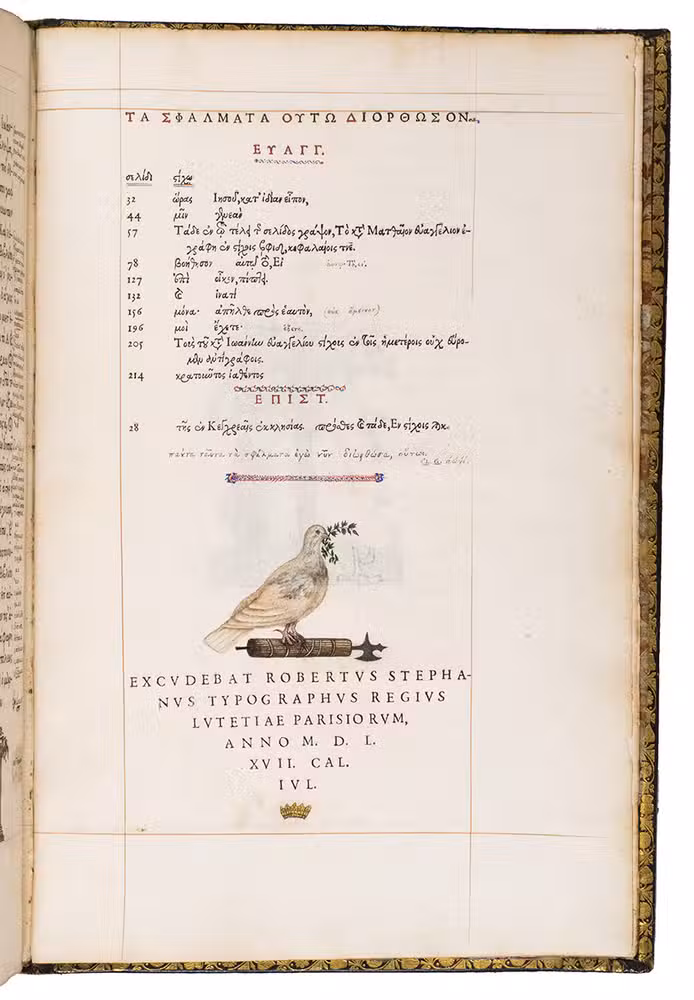 ΤΑ ΣΦΑΛΜΑΤΑ ΟΥΤΩ ΔΙΟΡΘΩΣΟΝ
ΕΥΑΓΓ.
σελίδι στίχῳ
32 ὥρας Ἰησοῦ, κατ' ἰδίαν εἶπον,
44 μὶν
57 Τάδε ἐν τῷ τέλει τῆς σελίδος γράψον, Τὸ κτ Ματθαῖον εὐαγγέλιον ἐ-
γράφη ἐν στίχοις ͵βφιδ, κεφαλαίοις τνε.
78 βοήθησον αὐτῷ ὁ, Εἰ
127 ὑπὲ οἶκον, πίπτει.
132 καὶ ἱνατί
156 μόνα· ἀπῆλθε πρὸς ἑαυτὸν,
196 μοὶ ἔχετε·
205 Τοῖς τοῦ κτ Ἰωάννου εὐαγγελίου στίχοις ἐν τοῖς ἡμετέροις οὐχ εὕρο-
μεν ἀντιγράφοις.
214 κρατοῦντος ἰαθέντος
ΕΠΙΣΤ.
28 τῆς ἐν Κεγχρεαῖς ἐκκλησίας. πρόσθες καὶ τάδε, Ἐν στίχοις
παντα ταῦτα τὰ σφάλματα ἐγὼ νῦν διωρθωσα, οὕτω.
EXCVDEBAT ROBERTVS STEPHA-
NVS TYPOGRAPHVS REGIVS
LVTETIAE PARISIORVM,
ANNO M. D. L.
XVII. CAL.
IVL.